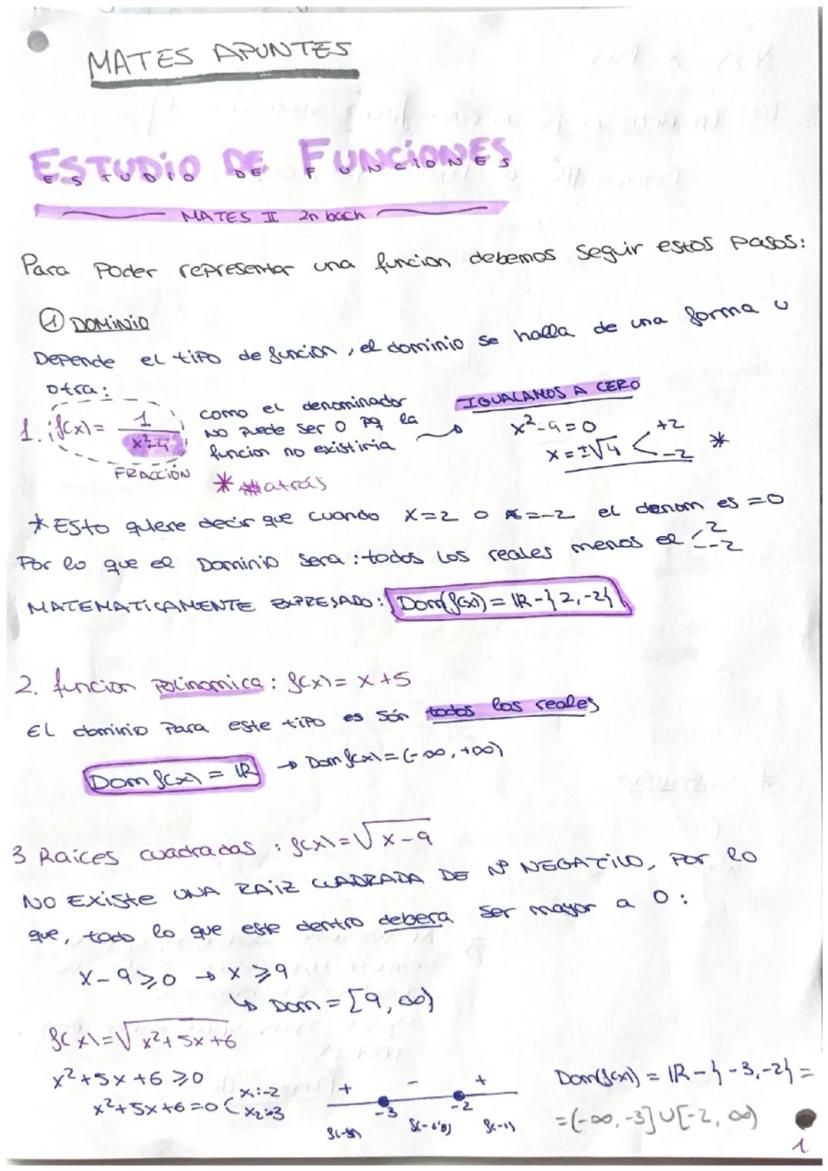 MATES APUNTES
ESTUDIO DE FUNCIONES
MATES II 2n bach
Para poder representar una funcion debemos seguir estos pasos:
① DOMINIO
Depende el tipo de función, el dominio se halla de una forma u
otra:
1. f(x) = 1 / x²-4
FRACCIÓN
como el denominador
no puede ser 0 pq la
funcion no existiria
* atrás
IGUALAMOS A CERO
x²-4=0
x=±√4 < +2 -2 *
* Esto quiere decir que cuando x=2 o x=-2 el denom es =0
Por lo que el Dominio sera: todos los reales menos el < 2 -2
MATEMATICAMENTE EXPRESADO: Dom(f(x)) = ℝ-{2,-2}
2. funcion polinomica: f(x)= x+5
El dominio para este tipo es son todos los reales
Dom f(x) = ℝ → Dom f(x) = (-∞, +∞)
3 Raices cuadradas: f(x)=√x-9
NO EXISTE UNA RAIZ CUADRADA DE Nº NEGATIVO, POR lo
que, todo lo que este dentro debera ser mayor a 0:
x-9≥0 → x≥9
↳ Dom = [9, ∞)
f(x)=√x²+5x+6
x²+5x+6≥0
x²+5x+6=0 < x:-2 x₂:-3
+ - +
-3 -2
Dom(f(x)) = ℝ-{-3,-2} =
=(-∞,-3]∪[-2, ∞)
1